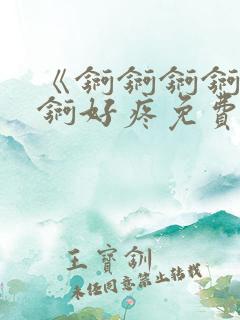 《锕锕锕锕
锕好疼免費
王寶釧
未经同意禁止转载